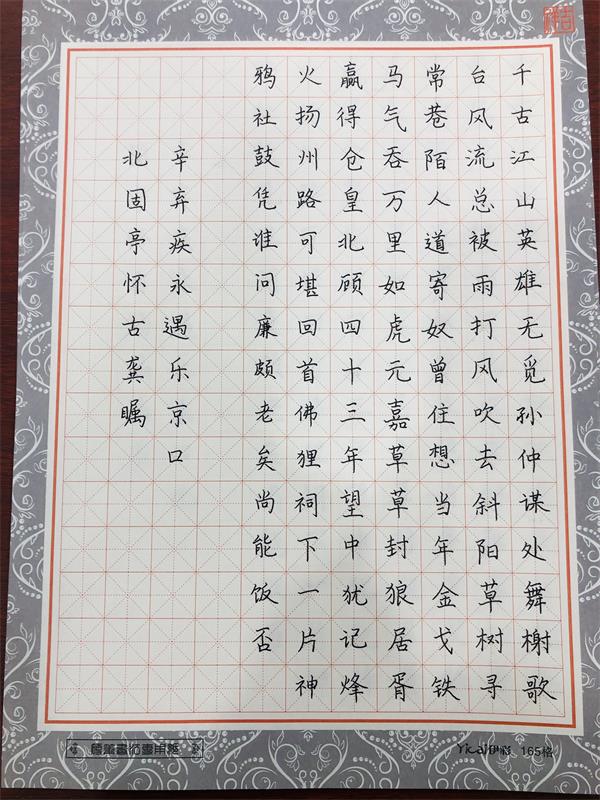 千古江山英雄无觅孙仲谋处舞榭歌
台风流总被雨打风吹去斜阳草树寻
常巷陌人道寄奴曾住想当年金戈铁
马气吞万里如虎元嘉草草封狼居胥
赢得仓皇北顾四十三年望中犹记烽
火扬州路可堪回首佛狸祠下一片神
鸦社鼓凭谁问廉颇老矣尚能饭否
辛弃疾永遇乐京口
北固亭怀古龚瞩
165格